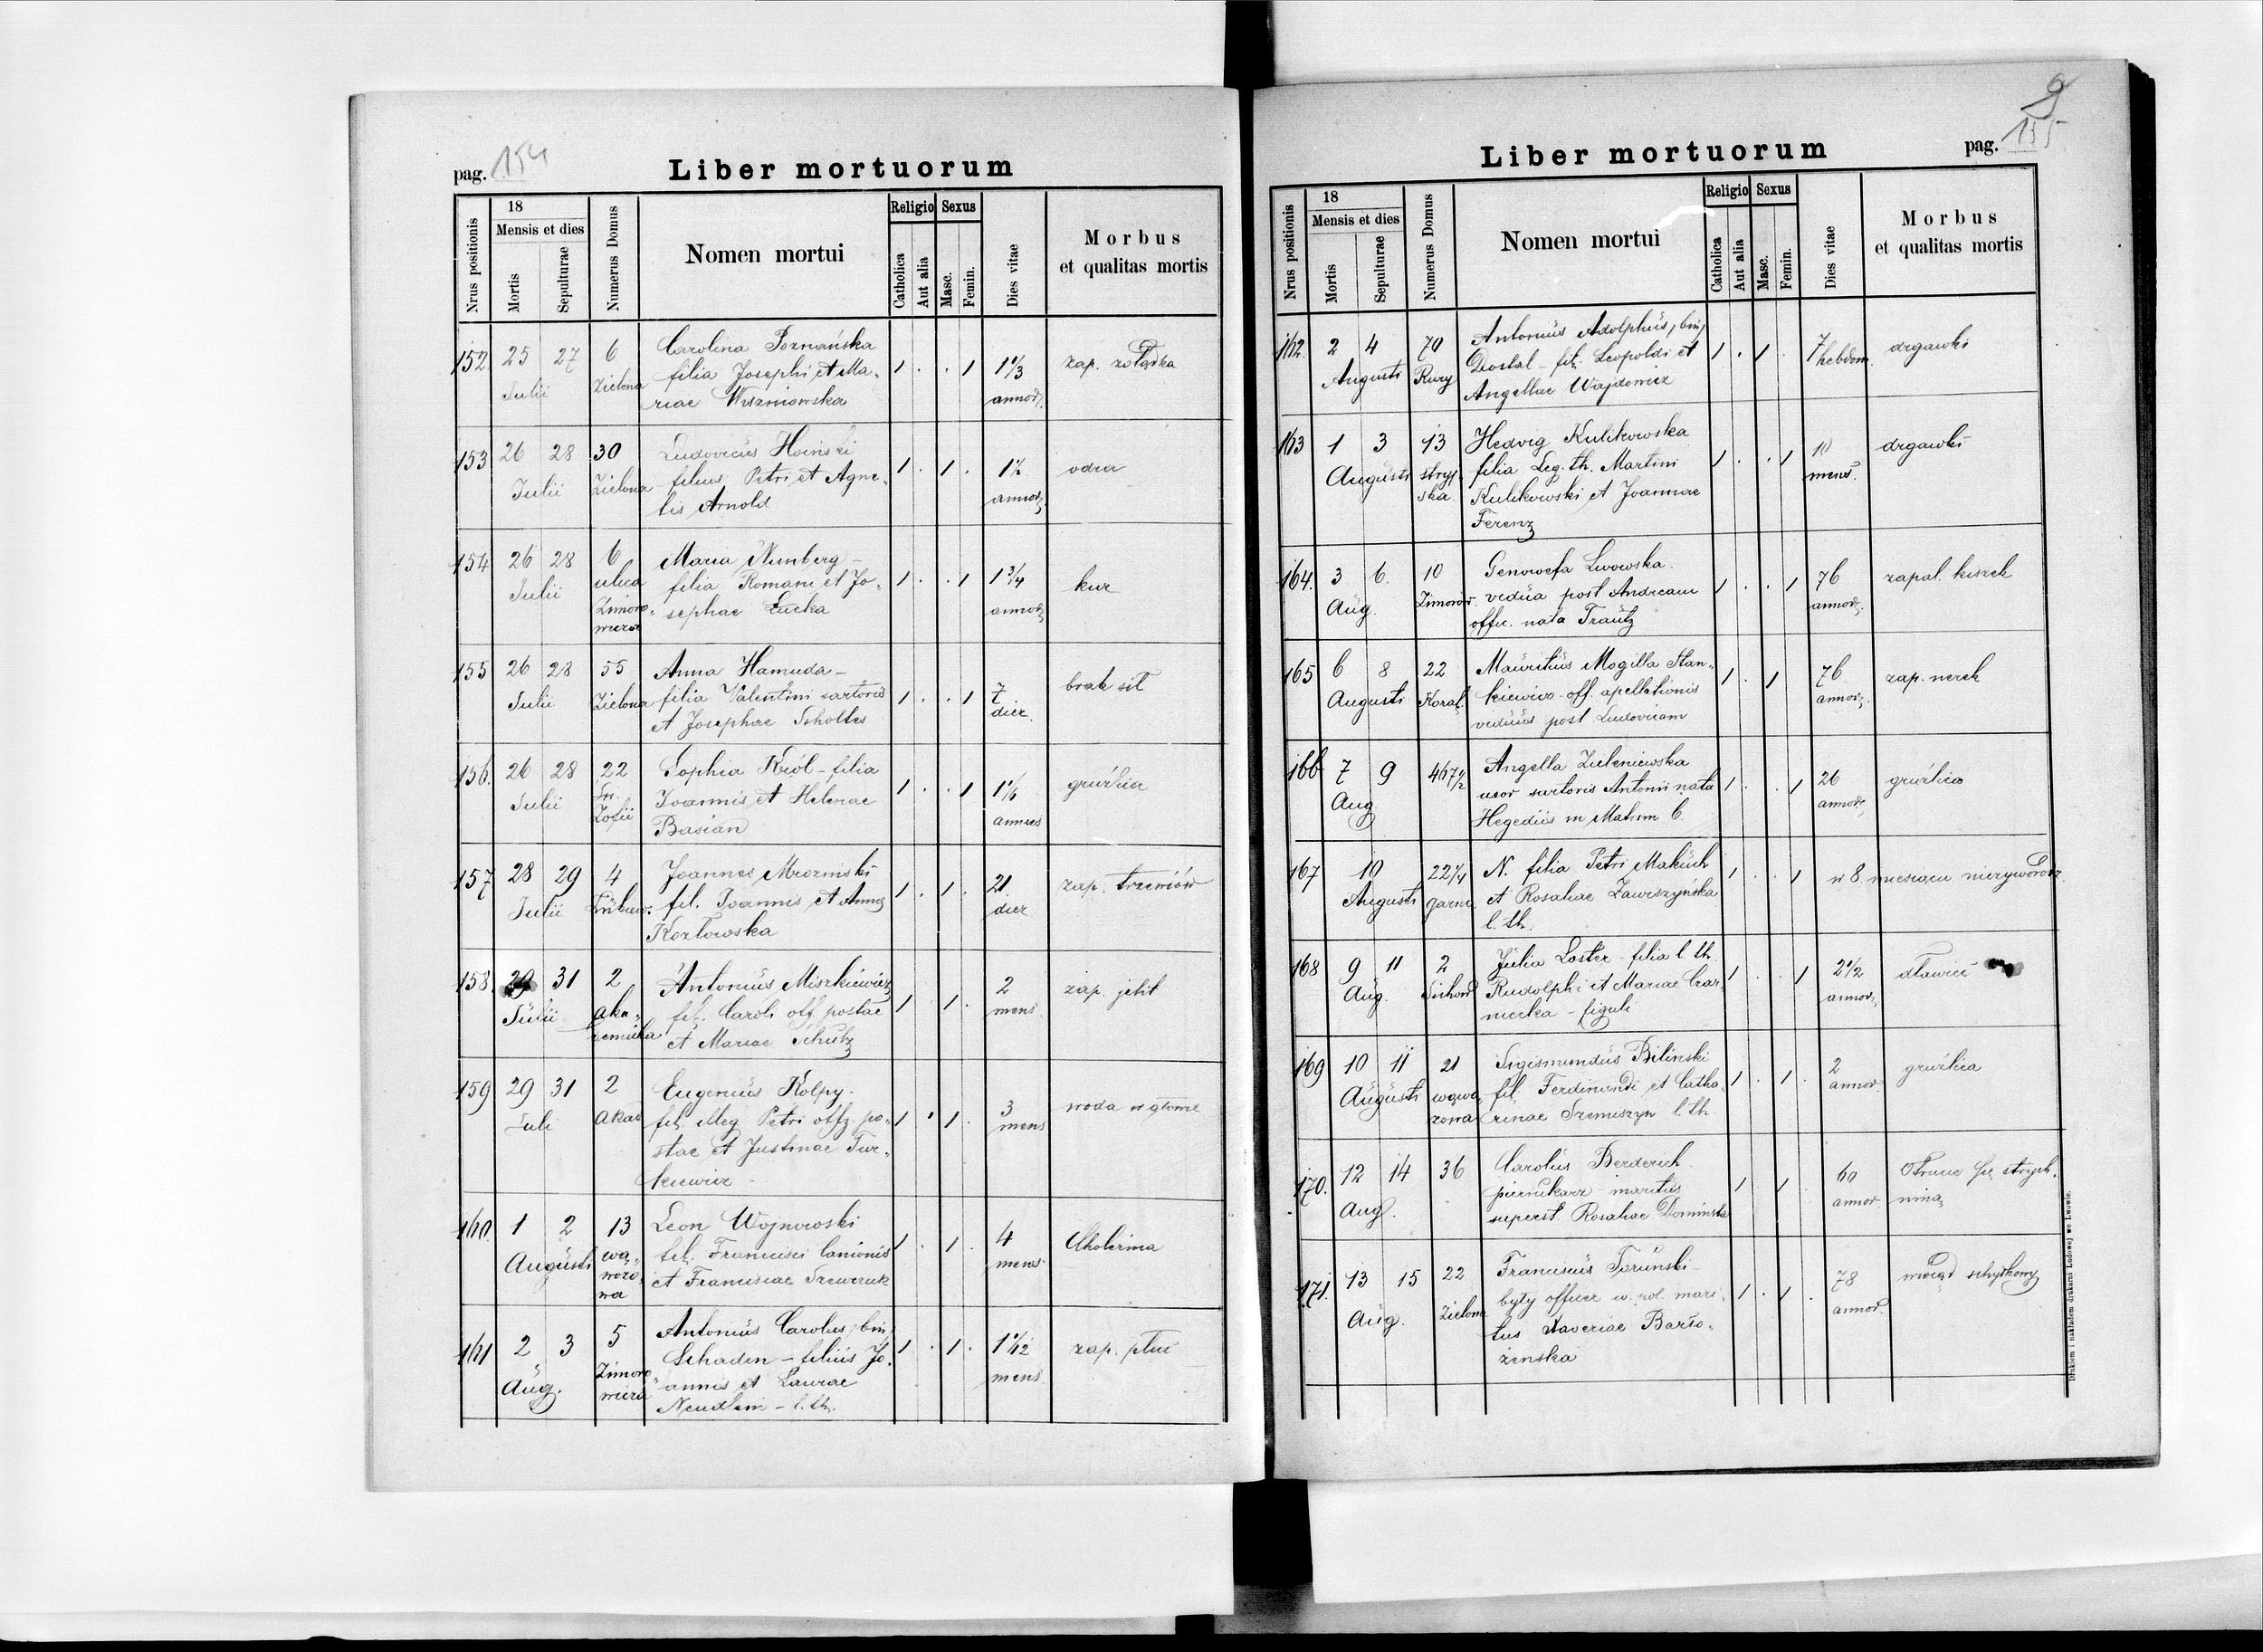 pag. 154
Liber mortuorum
Nrus positionis
18
Mensis et dies
Mortis
Sepulturae
Numerus Domus
Nomen mortui
Religio
Catholica
Aut alia
Sexus
Masc.
Femin.
Dies vitae
Morbus
et qualitas mortis
152 25 27 6 Carolina Poznańska
Julii Zielona filia Josephi et Ma- 1 . . 1 1 1/3 zap. żołądka
riae Wiszniowska annor.
153 26 28 30 Ludovicus Hoinski
Julii Zielona filius Petri et Agne- 1 . 1 . 1 1/2 odra
tis Arnold annor.
154 26 28 6 Maria Nirnberg -
Julii ulica filia Romani et Jo- 1 . . 1 1 3/4 kur
Zimoro- sephae Łucka annor.
wicza
155 26 28 55 Anna Hamuda -
Julii Zielona filia Valentini sartoris 1 . . 1 7 brak sił
et Josephae Scholtes dier.
156. 26 28 22 Sophia Król - filia
Julii Św. Joannis et Helenae 1 . . 1 1 1/6 gruźlica
Zofii Basian annus
157 28 29 4 Joannes Mrozinski
Julii fil. Joannis et Annae 1 . 1 . 21 zap. trzewiów
Kozłowska dier
158. 29 31 2 Antonius Miszkiewicz
Julii aka- fil. Caroli off. postae 1 . 1 . 2 zap. jelit
demicka et Mariae Schütz mens.
159 29 31 2 Eugenius Kolpy.
Juli Akad fil. Meg Petri offz. po- 1 . 1 . 3 woda w głowie
stae et Justinae Tur- mens
kiewicz -
160. 1 2 13 Leon Wojnowski
Augusti wą- fil. Francisci lanionis 1 . 1 . 4 Cholerina
wozo- et Franciscae Szewczuk mens.
wa
161 2 3 5 Antonius Carolus, bin,
Aug. Zimoro- Schaden - filius Jo- 1 . 1 . 1 1/12 zap. płuc
wicza annis et Laurae mens
- l. th.
9
pag. 155
Liber mortuorum
Nrus positionis
18
Mensis et dies
Mortis
Sepulturae
Numerus Domus
Nomen mortui
Religio
Catholica
Aut alia
Sexus
Masc.
Femin.
Dies vitae
Morbus
et qualitas mortis
162 2 4 70 Antonius Adolphus, bin,
Augusti Rury Dostal - fil. Leopoldi et 1 . 1 . 7 drgawki
Angellae Wajdowicz hebdom.
163 1 3 13 Hedvig Kulikowska
Augusti stryj- filia Leg. th. Martini 1 . . 1 10 drgawki
ska Kulikowski et Joannae mens.
Ferenz
164. 3 6. 10 Genowefa Lwowska
Aug. Zimorow. vidua post Andream 1 . . 1 76 zapal. kiszek
offic. nata Trautz annor.
165 6 8 22 Mauritius Mogilla Stan-
Augusti Koral. kiewicz - off. apellationis 1 . 1 76 zap. nerek
viduus post Ludovicam annor.
166 7 9 467 1/2 Angella Zieleniewska
Aug uxor sartoris Antonii nata 1 . . 1 26 gruźlica
Hegediis m Matrim 6. annor.
167 10 22 1/4 N. filia Petri Makuch
Augusti Garnc. et Rosaliae Zawiszyńska 1 . . 1 w 8 miesiącu nieżyworodz.
l. th.
168 9 11 2 Julia Loster - filia l. th.
Aug. Sichow Rudolphi et Mariae Czar- 1 . . 1 2 1/2 dławiec
niecka - figuli annor.
169 10 11 21 Sigismundus Bilinski
Augusti wąwo- fil. Ferdinandi et Catha- 1 . 1 . 2 gruźlica
zowa rinae Szemiszyn l. th. annor.
170. 12 14 36 Carolus Berderich
Aug. piernikarz - maritus 1 1 60 Otrucie się strych-
superst. Rosaliae Dominska annor niną
171. 13 15 22 Franciscus Toruński -
Aug. Zielona były officer w. pol. mari- 1 . 1 . 78 uwiąd schyłkowy
tus Xaveriae Barto- annor.
zenska
Drukiem i nakładem drukarni Ludowej we Lwowie.